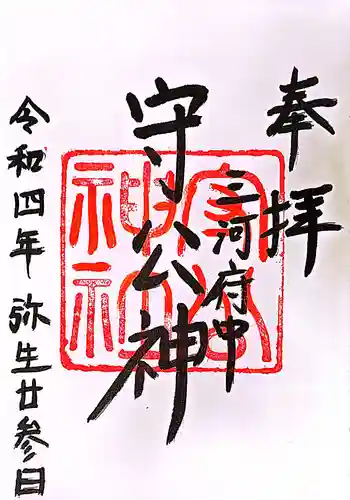 奉拝
三河府中
守公神
令和四年 弥生廿参日
守公神社